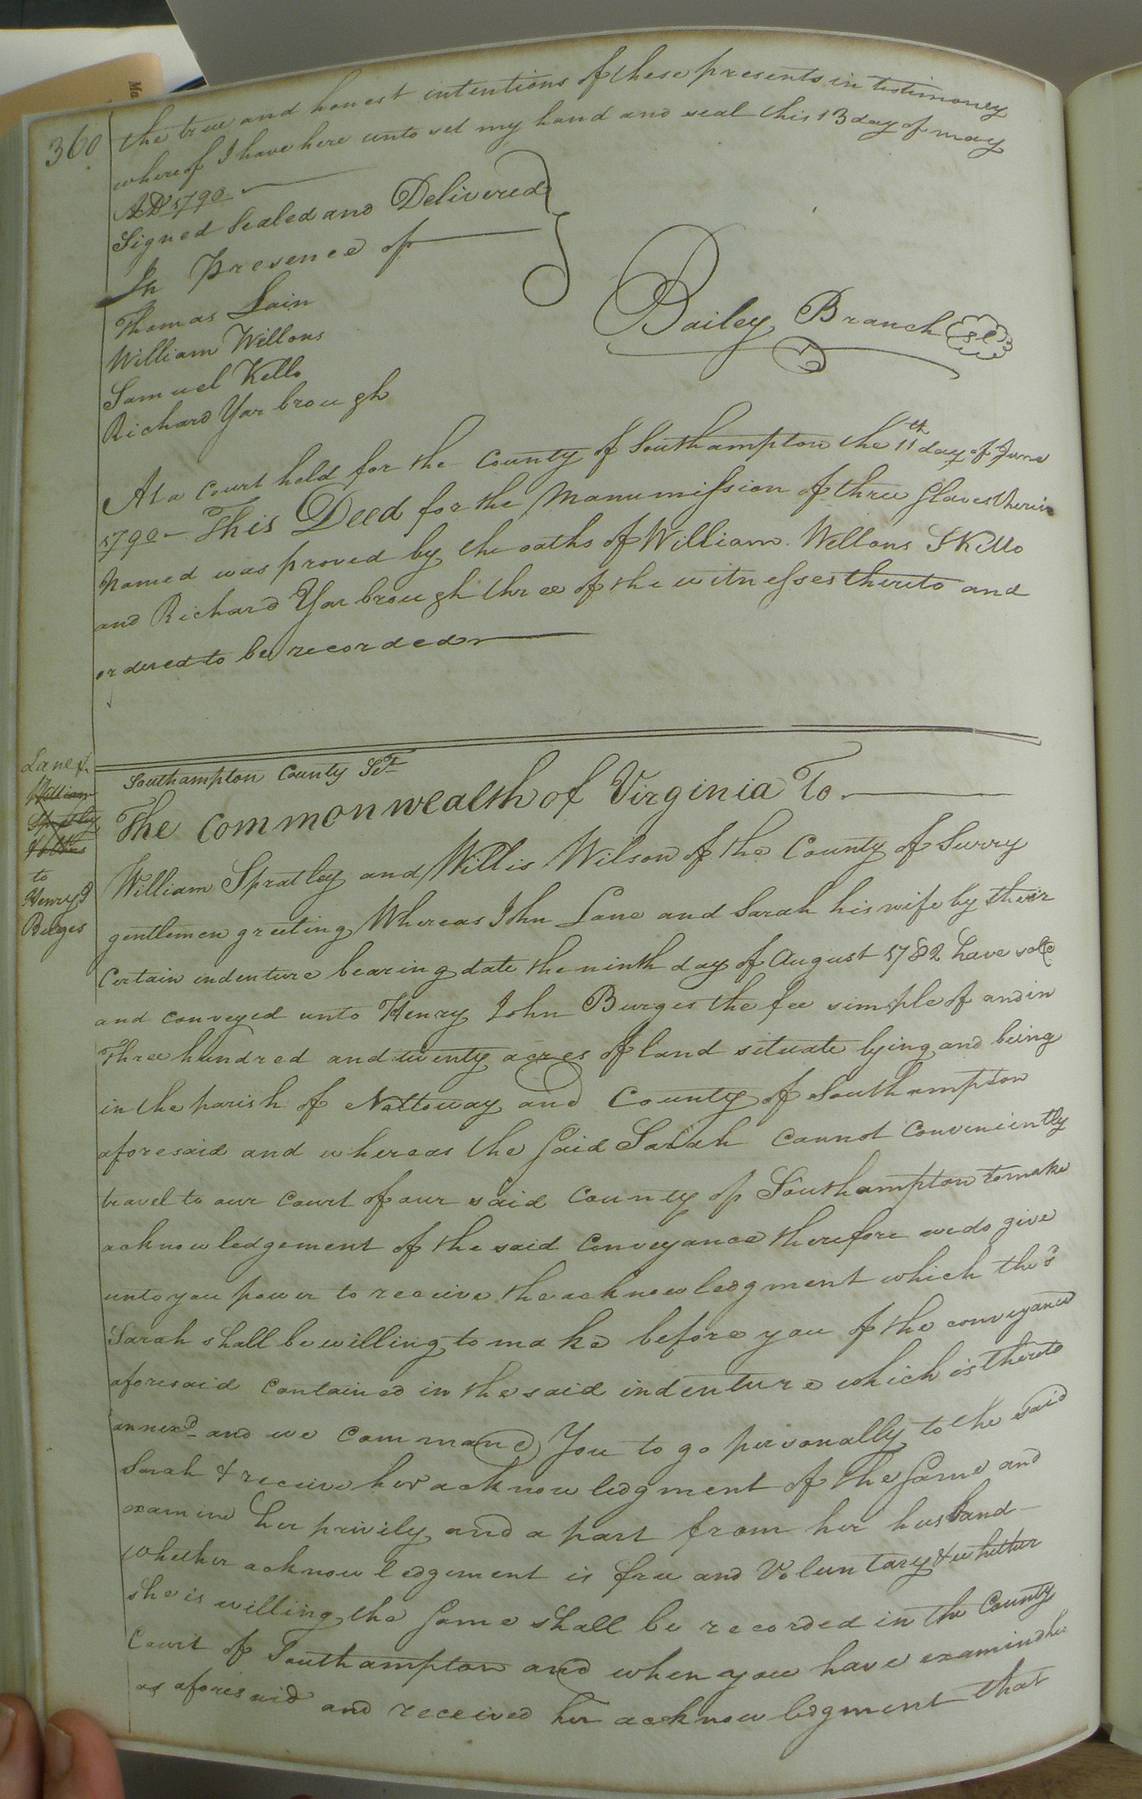 Ma
360
the true and honest intentions of these presents in testimoney
whereof I have here unto set my hand and seal this 13 day of may
AD 1790
Signed Sealed and Delivered
In Presence of
Thomas Lain
William Wellons
Samuel Kello
Richard Yarbrough
Bailey Branch
At a Court held for the County of Southampton the 11th day of June
1790 - This Deed for the Manumission of three Slaves therin
Named was proved by the oaths of William Wellons S Kello
and Richard Yarbrough three of the witnesses thereto and
ordered to be recorded
Lane &
William
Spratley
to
Henry J
Burges
Southampton County Sct
The Commonwealth of Virginia To
William Spratley and Willis Wilson of the County of Surry
gentlemen greeting Whereas John Lane and Sarah his wife by their
Certain indenture bearing date the ninth day of August 1782 have sold
and conveyed unto Henry John Burges the fee simple of and in
Three hundred and twenty acres of land situate lying and being
in the parish of Nottoway and County of Southampton
aforesaid and whereas the Said Sarah Cannot Conveniently
travel to our Court of our said County of Southampton to make
acknowledgement of the said Conveyance therefore we do give
unto you power to receive the acknowledgment which the sd
Sarah shall be willing to make before you of the conveyance
aforesaid contained in the said indenture which is thereto
annexd and we command You to go personally to the said
Sarah & receive her acknowledgment of the Same and
examine her privily and a part from her husband
Whether acknowledgement is free and Voluntary & whether
she is willing the Same shall be recorded in the County
Court of Southampton and when you have examind her
as aforesaid and received her acknowledgment that